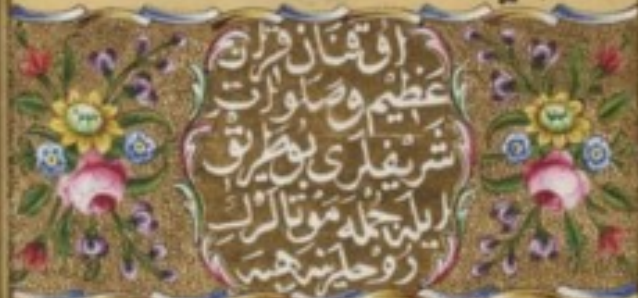 اوقنان قران
عظیم وصلوات
شریفلری بو طریق
ایله جمله موتالرك
روحلرینه هبه